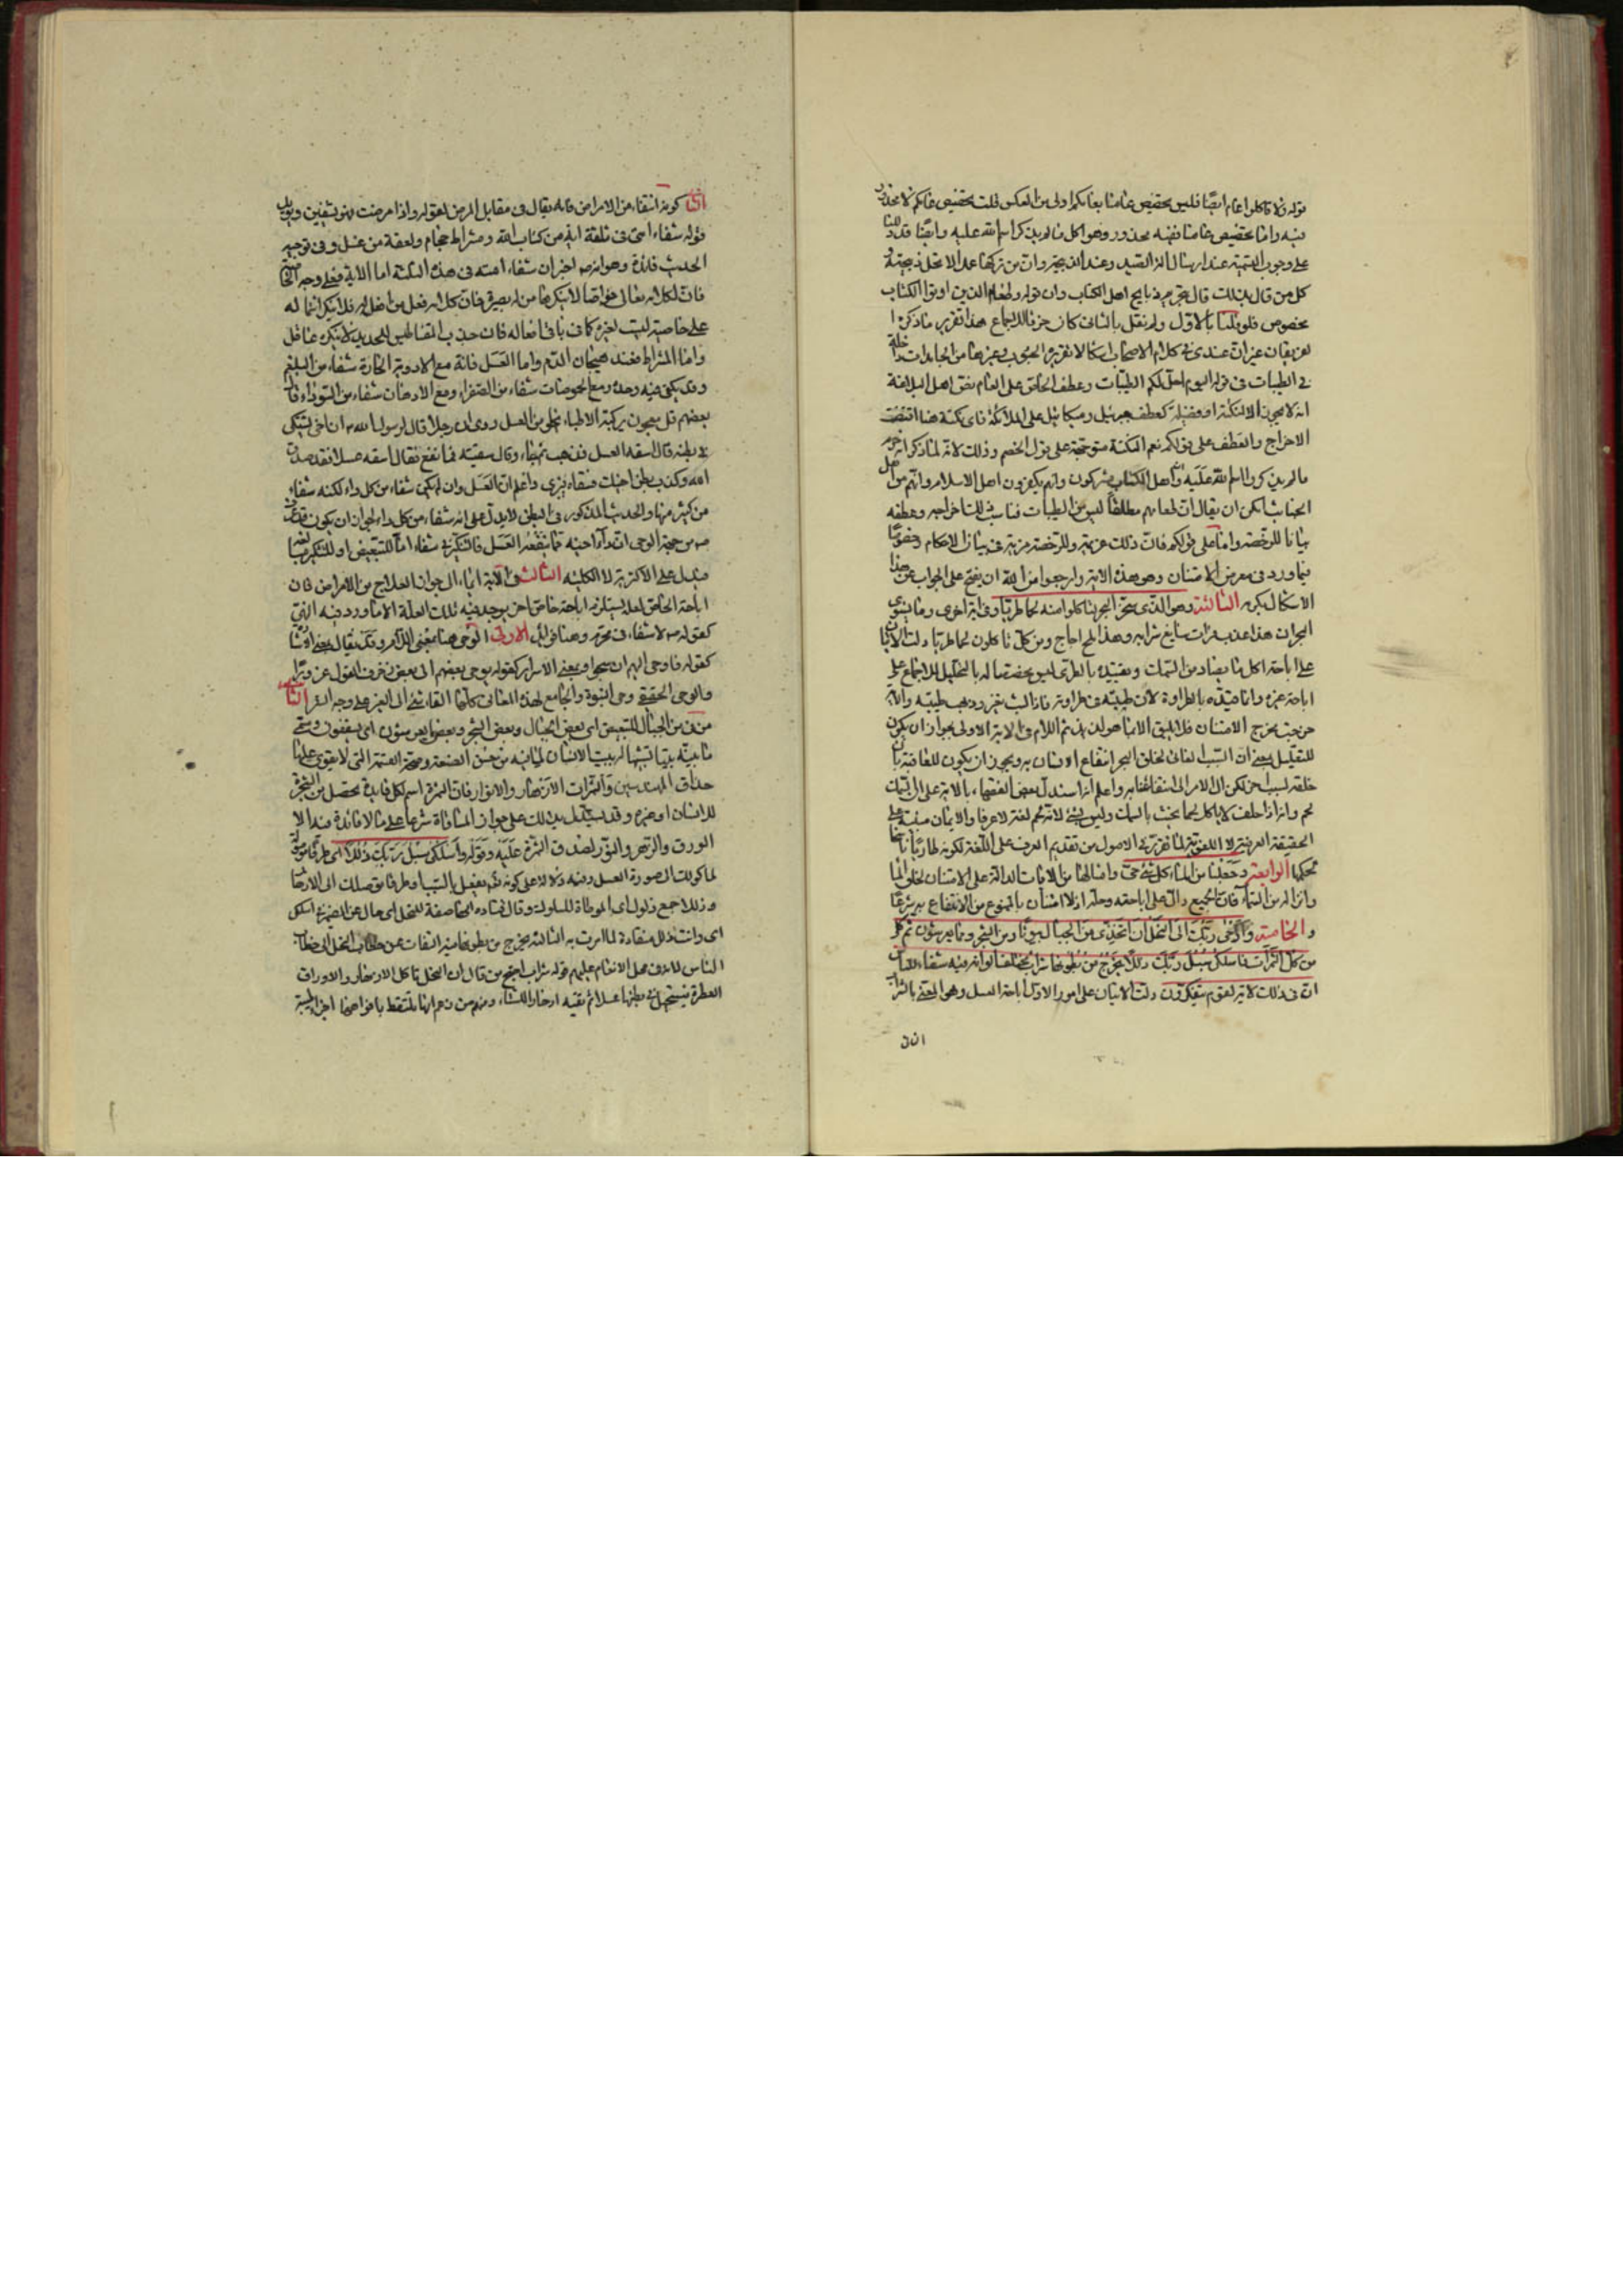 قوله ولا تاكلوا عام ايضًا فليس تخصيص عامنا بعامكم اولى من العكس قلت تخصيص عامكم لا محذور
فيه واما تخصيص عامنا ففيه محذور وهو اكل ما لم يذكر اسم الله عليه وايضًا قد دللنا
على وجوب التسمية عند ارسال الة الصيد وعند الذبح وان من تركها عمدا لا تحل ذبيحته و
كل من قال بذلك قال بتحريم ذبايح اهل الكتاب وان قوله وطعام الذين اوتوا الكتاب
مخصوص فلو قلنا بالاول ولم نقل بالثانى كان خرقا للاجماع هذا تقرير ما ذكره ا
غير ان عندى فى كلام الاصحاب اشكالا تقريره الحبوب وغيرها من الجامدات داخلة
فى الطيبات فى قوله اليوم احل لكم الطيبات وعطف الخاص على العام نص اهل البلاغة
انه لا يجوز الا لنكتة او فضيلة كعطف جبرئيل وميكائيل على الملائكة فاى نكتة هنا اقتضت
الاخراج والعطف على قولكم نعم النكتة متوجهة على قول الخصم وذلك لانه لما ذكر انه حرم
ما لم يذكر اسم الله عليه واهل الكتاب مشركون وانهم يكفرون اهل الاسلام وانهم من اهل
الجناب امكن ان يقال ان طعامهم مطلقًا ليس من الطيبات فناسب اخراجه وعطفه
بيانا للرخصة واما على قولكم فان ذلك عزيمة وللرخصة مزية فى بيان الاحكام وخصوصًا
فيما ورد فى معرض الامتنان وهو هذه الاية وارجوا من الله ان يفتح على الجواب عن هذا
الاشكال بكرمه الثالثة وهو الذى سخر البحر لتاكلوا منه لحما طريا وفى اية اخرى وما يستوى
البحران هذا عذب فرات سايغ شرابه وهذا ملح اجاج ومن كل تاكلون لحما طريا دلت الايتان
على اباحة اكل ما يصاد من السمك وتقييده بالطرى ليس تخصيصا له بالتحليل للاجماع على
اباحة غيره وانما قيده بالطراوة لان طيبته فى طراوته فاذا لبث تغير وذهب طيبته والاية
خرجت مخرج الامتنان فلا يليق الا بما هو لذيذ ثم اللام فى الاية الاولى يجوز ان يكون
للتعليل بمعنى ان السبب الغائى لخلق البحر انتفاع الانسان به ويجوز ان يكون للعاقبة بان
خلقه لسبب اخر لكن ال الامر الى انتفاعنا به واعلم انه استدل بعض الفقهاء بالاية على ان السمك
لحم وانه اذا حلف لا ياكل لحما يحنث بالسمك وليس بشئ لانه لحم لغة لا عرفا والايمان مبنية على
الحقيقة العرفية لا اللغوية لما تقرر فى الاصول من تقديم العرف على اللغة لكونه طاريًا ناسخا
لحكمها الرابعة وجعلنا من الماء كل شئ حى وامثالها من الايات الدالة على الامتنان بخلق الماء
وانزاله من السماء فان الجميع دال على اباحته وحله اذ لا امتنان بالممنوع من الانتفاع به شرعًا
والخامسة واوحى ربك الى النحل ان اتخذى من الجبال بيوتا ومن الشجر ومما يعرشون ثم كلى
من كل الثمرات فاسلكى سبل ربك ذللا يخرج من بطونها شراب مختلف الوانه فيه شفاء للناس
ان فى ذلك لاية لقوم يتفكرون دلت الايتان على امور الاول اباحة العسل وهو المعنى بالشراب
الثانى
الثانى كونه شفاء من الامراض فانه يقال فى مقابل المرض لقوله واذا مرضت فهو يشفين ويؤيده
قوله شفاء امتى فى ثلثة اية من كتاب الله ومشراط حجام ولعقة من عسل وفى توجيه
الحديث فائدة وهو انه اخبر ان شفاء امته فى هذه الثلثة اما الاية فعلى وجه الخاص
فان لكلامه تعالى خواصا لا ينكرها من له بصيرة فان كل اية فعل من افعاله فلا ينكر اشتماله
على خاصية ليست لغيره كما فى باقى افعاله فان جذب المقناطيس للحديد لا ينكره عاقل
واما المشراط فعند هيجان الدم واما العسل فانه مع الادوية الحارة شفاء من البلغم
وقد يكفى فيه وحده ومع الحموضات شفاء من الصفراء ومع الادهان شفاء من السوداء قال
بعضهم قل معجون يركبه الاطباء يخلى من العسل روى ان رجلا قال لرسول الله ان اخى يشتكى
بطنه قال اسقه العسل فذهب ثم جاء وقال سقيته فما نفع فقال اسقه عسلا فقد صدق
الله وكذب بطن اخيك فسقاه فبرئ واعلم ان العسل وان لم يكن شفاء من كل داء لكنه شفاء
من كثير منها والحديث المذكور فى البطن لا يدل على انه شفاء من كل داء لجواز ان يكون قد عرف
من جهة الوحى ان داء اخيه مما ينفعه العسل فالتنكير فى شفاء اما للتبعيض او للتكثير
فيدل على الاكثرية لا الكلية الثالث فى الاية ايماء الى جواز العلاج من الامراض فان
اباحة الخاص لعلة يستلزم اباحة خاص اخر يوجد فيه تلك العلة الا ما ورد فيه النهى
كقوله لا شفاء فى محرم وهنا فوائد الاولى الوحى هنا بمعنى الالهام وقد يقال بمعنى
كقوله فاوحى اليهم ان سبحوا وبمعنى الاسرار كقوله يوحى بعضهم الى بعض زخرف القول غرورًا
والوحى الحقيقى وحى النبوة والجامع لهذه المعانى كلها القاء شئ الى الغير على وجه السر الثانية
من فى من الجبال للتبعيض اى بعض الجبال وبعض الشجر وبعض ما يعرشون اى يسقفون وسمى
ما تبنيه بيتا تشبيها ببيت الانسان لما فيه من حسن الصنعة وصحة القسمة التى لا يقوى عليها
حذاق المهندسين والثمرات الازهار والانوار فان الثمرة اسم لكل فايدة تحصل من الشجرة
للانسان او غيره وقد يستدل بذلك على جواز المساقاة شرعا على ما لا فائدة فيه الا
الورق والزهر والنور لصدق الثمرة عليه وقوله فاسلكى سبل ربك ذللا اى طرقا موصلة
لما كولك الى صورة العسل وفيه دلالة على كونه بفعل السبب او طرقا توصلك الى الازهار
وذللا جمع ذلول اى الموطاة للسلوك وقال قتادة انها صفة للنحل اى حال عن الضمير فى اسلكى
اى وانت ذلل منقادة لما امرت به الثالثة يخرج من بطونها فيه التفات عن خطاب النحل الى خطاب
الناس للانعام عليهم قوله شراب احتج من قال ان النحل تاكل الازهار والاوراق
العطرة فيستحيل فى بطنها عسلا ثم تقيئه ادخارا للشتاء ومنهم من زعم انها تلتقط بافواهها اجزاء